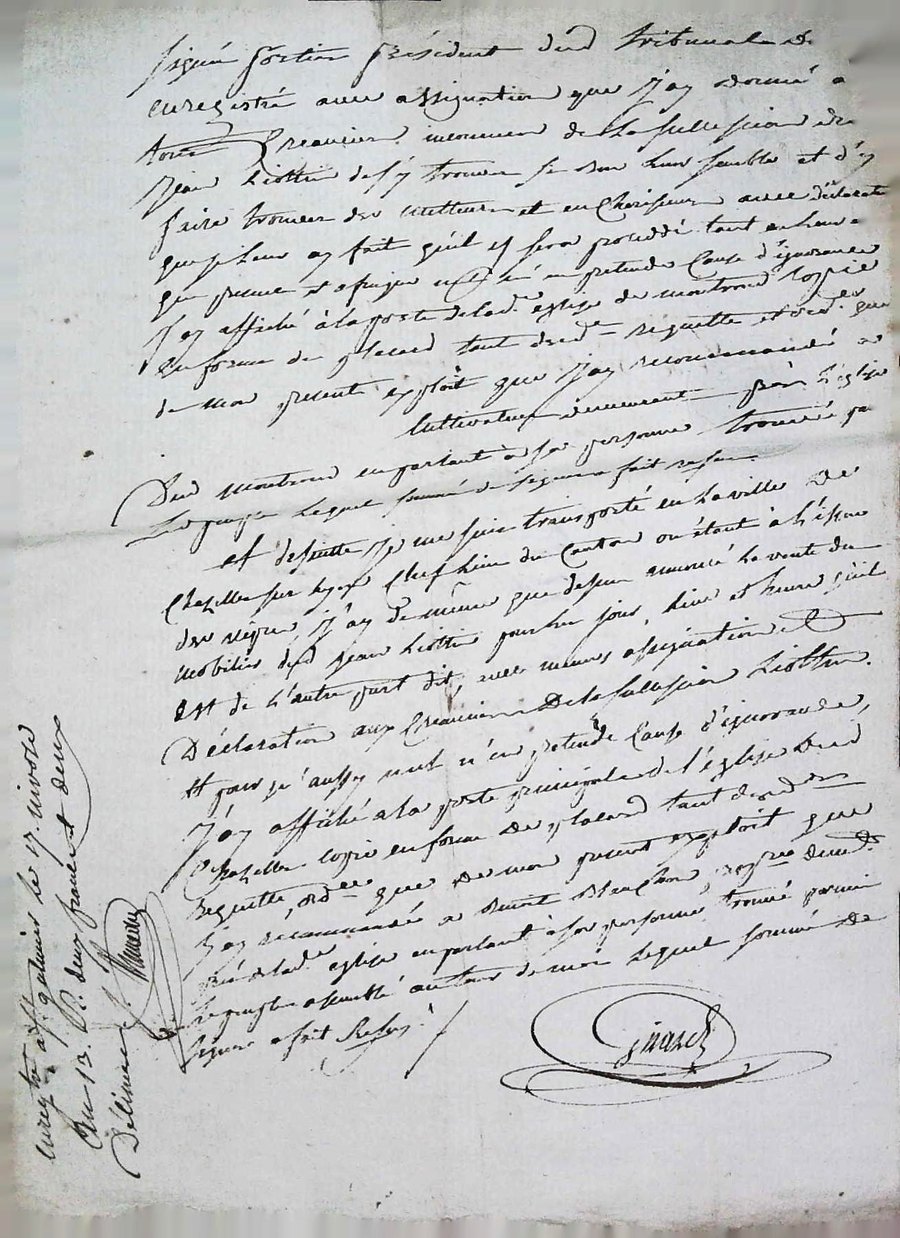 signé fortier président dud tribunal de
enregistré avec assignation que j'ay donné a
tous Créanciers inconnus de la succession de
jean Liottin de s'y trouver si bon leur semble et d'y
faire trouver des metteurs et encherisseurs avec déclaration
que je leur ay fait qu'il y sera procédé tant en leur
que presence et afin que nul n'en prétende cause d'ignorance
j'ay affiché à la porte de lad. église de montrond copie
en forme de placard tant desd. requette et ord. que
de mon present exploit que j'ay recommandé a
cultivateur demeurant près l'église
Dud montrond en parlant a sa personne trouvée
lequel sommé de signer a fait refus
et desuitte je me suis transporté en la ville de
Chazelle sur Lyon chef lieu du Canton où étant à l'issue
des vêpres, j'ay de même que dessus annoncé la vente du
mobilier dud jean Liottin pour les jour, lieu et heure qu'il
est de l'autre part dit, avec mêmes assignation et
Déclaration aux Créanciers De la succession Liottin.
et pour qu'aussy nul n'en prétende Cause d'ignorance,
j'ay affiché a la porte principale de l'église Dud
Chazelle copie en forme De placard tant desd.
requette, ord. que De mon present exploit que
j'ay recommandé a Blanchon, dud.
de lad. église en parlant à sa personne trouvé parmi
le peuple assemblé autour de moi lequel sommé de
signer a fait Refus. /
Girard
enregtré a St galmier le 17. nivose
an 13. R. deux francs deux
Décimes